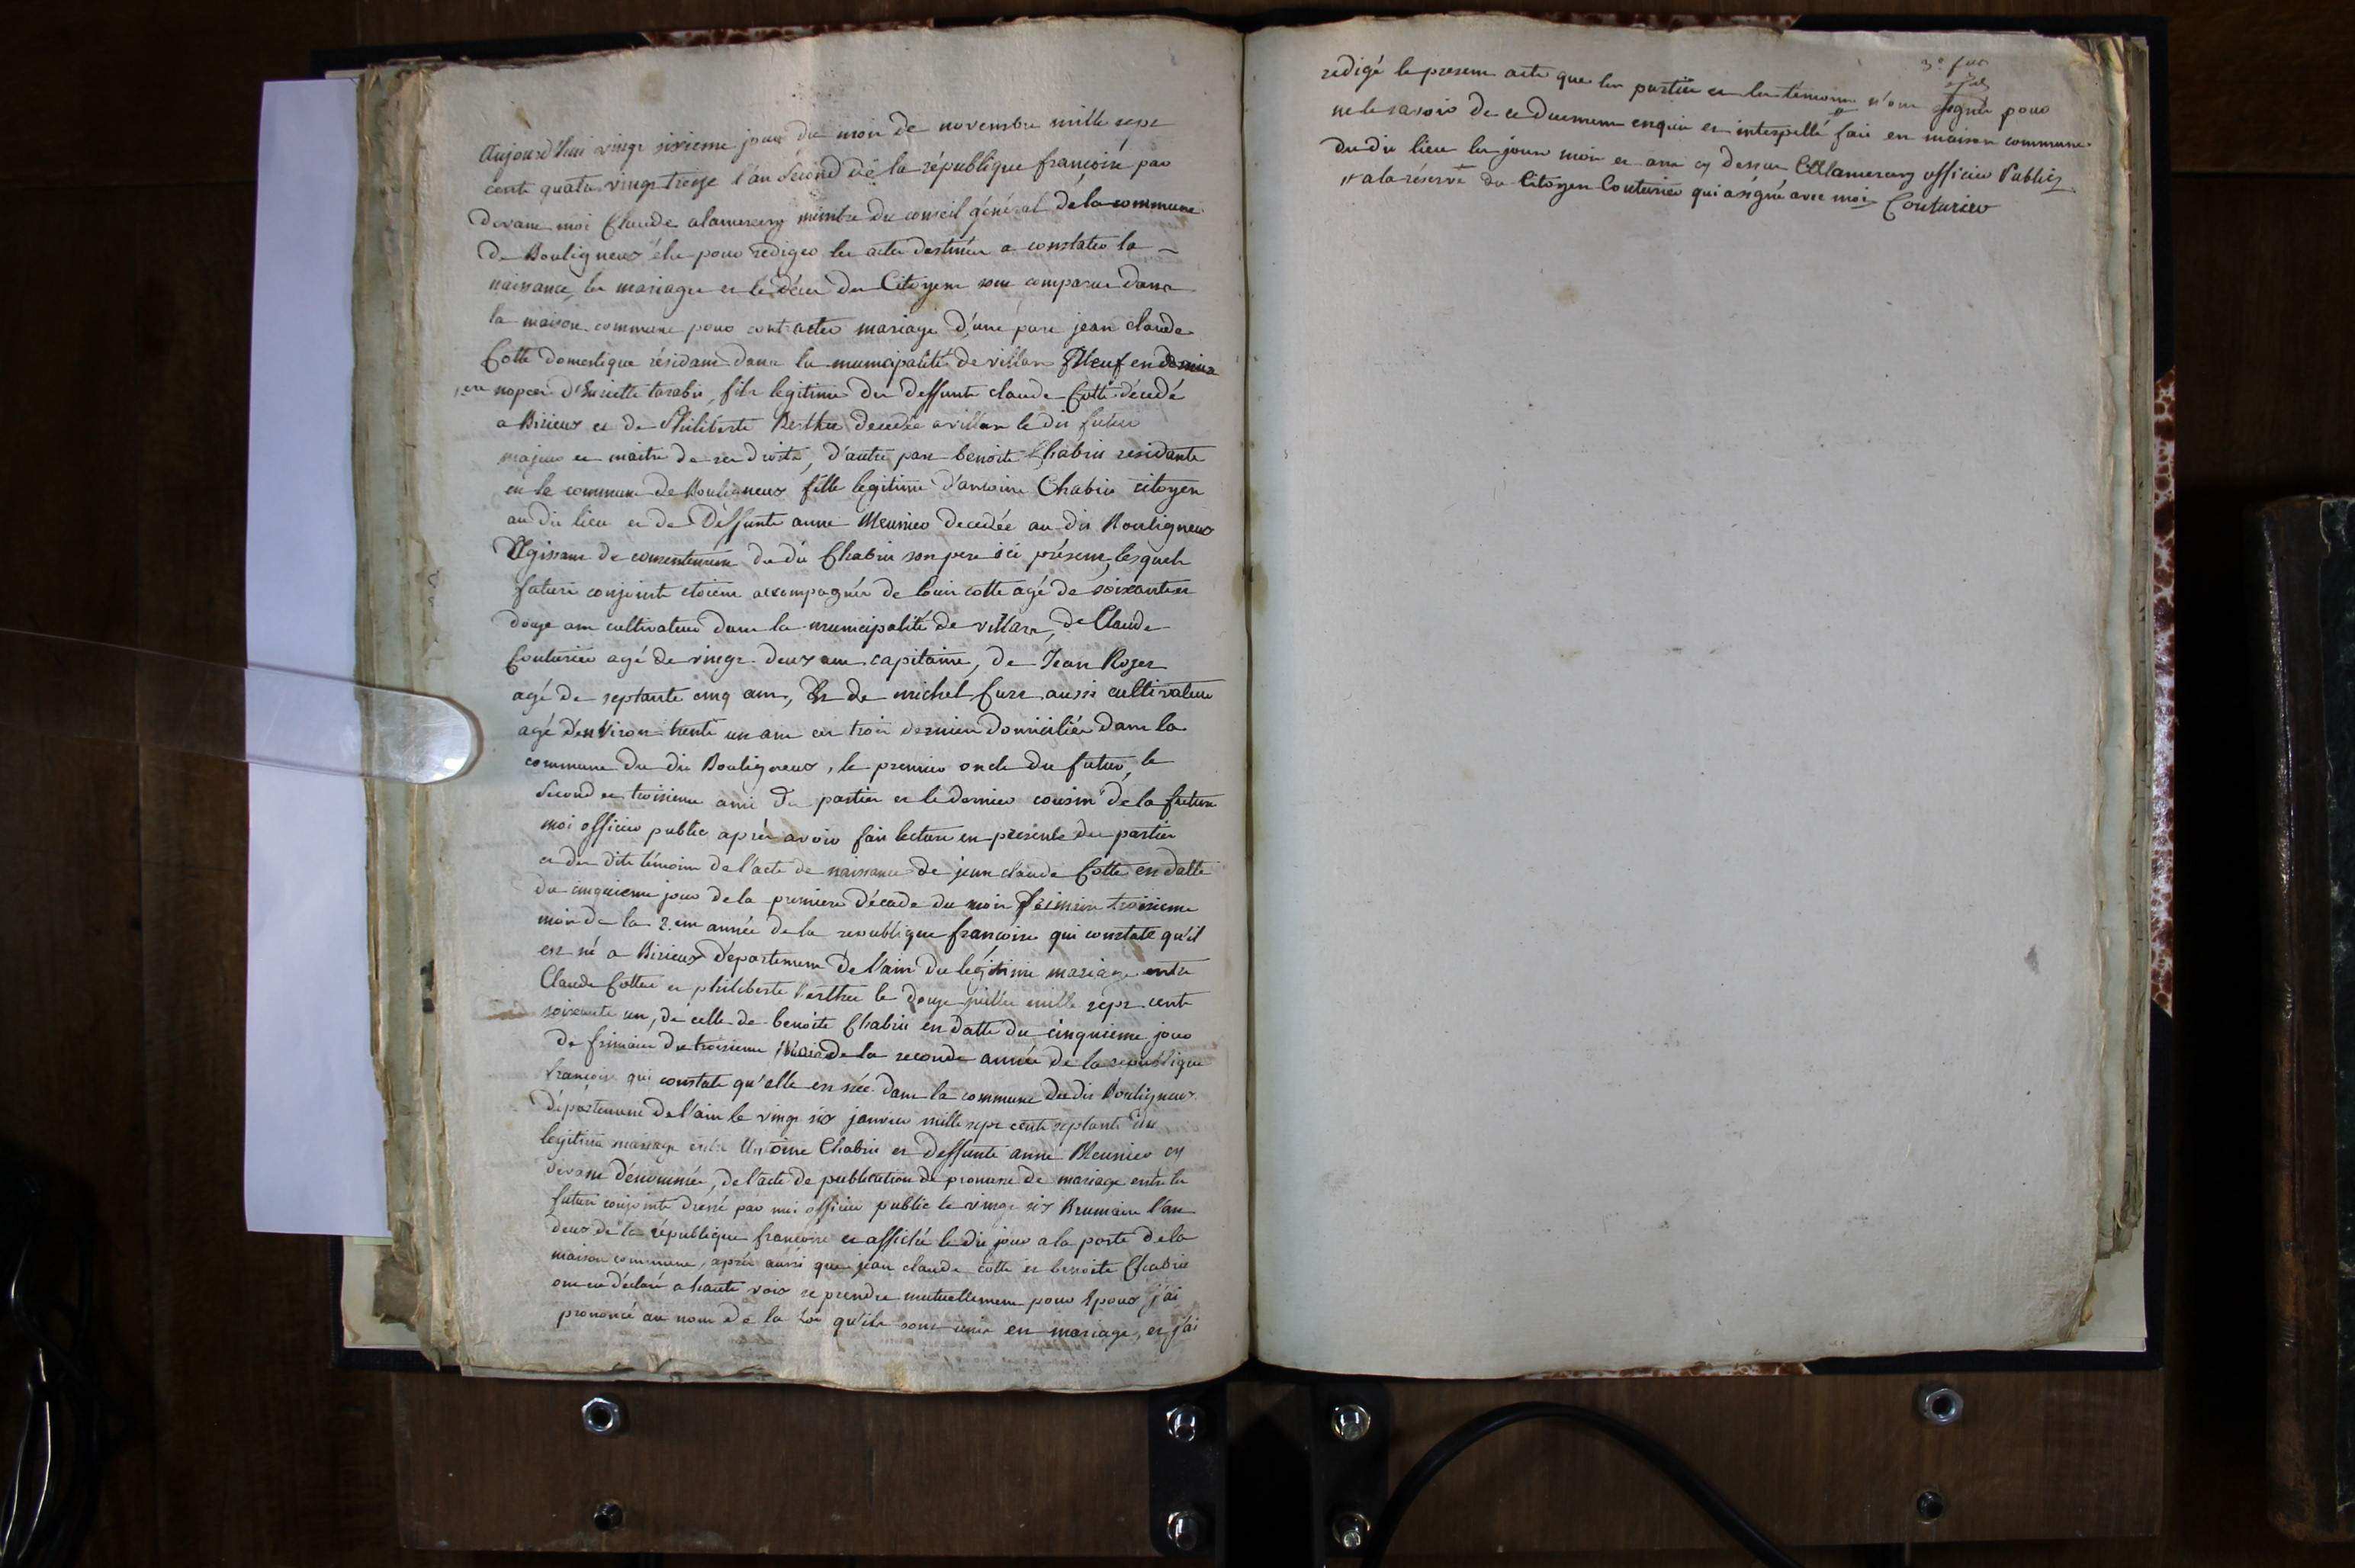 Aujourd'hui vingt sixieme jour du mois de novembre mille sept
cents quatre vingt treize l'an second de la république françoise par
devant moi Claude alamercery membre du conseil général de la commune
de Bouligneux élu pour rediger les actes destinés a constater la
naissance, les mariages et le décès des Citoyens sont comparus dans
la maison commune pour contracter mariage d'une part jean claude
Cotte domestique résidant dans la municipalité de villars veuf en
nopces d' fils legitime des deffunts claude Cotte décédé
a Birieux et de Philiberte Berthet decedée a villars le dit futur
majeur et maitre de ses droits, d'autre part benoite Chabrie residante
en la commune de Bouligneux fille legitime d'antoine Chabrie citoyen
au dit lieu et de Deffunte anne Meunier decedée au dit Bouligneux
Agissant de consentement du dit Chabrie son pere ici présent, lesquels
futurs conjoints etoient accompagnés de louis cotte agé de soixantes
douze ans cultivateur dans la municipalité de villars, de Claude
Couturier agé de vingt deux ans capitaine, de Jean Roger
agé de septante cinq ans, Et de michel aussi cultivateur
agé d'environ trente un ans les trois derniers domiciliés dans la
commune du dit Bouligneux, le premier oncle du futur, le
second et troisieme amis des parties et le dernier cousin de la future
moi officier public après avoir fait lecture en presence des parties
et des dits témoins de l'acte de naissance de jean claude Cotte en datte
du cinquieme jour de la premiere décade du mois frimaire troisieme
mois de la 2.eme année de la republique françoise qui constate qu'il
est né a Birieux département de l'ain du légitime mariage entre
Claude Cotte et philiberte Berthet le douze juillet mille sept cents
soixante un, de celle de benoite Chabrie en datte du cinquieme jour
de frimaire du troisieme mois de la seconde année de la republique
francoise qui constate qu'elle est née dans la commune du dit Bouligneux
département de l'ain le vingt six janvier mille sept cents septante du
legitime mariage entre Antoine Chabrie et deffunte anne Meunier cy
devant dénommés, de l'acte de publication de promesse de mariage entre les
futurs conjoints dressé par moi officier public le vingt six Brumaire l'an
deux de la république francoise et affiché le dit jour a la porte de la
maison commune, après aussi que jean claude cotte et benoite Chabrie
ont eu déclaré a haute voix se prendre mutuellement pour Epoux j'ai
prononcé au nom de la loi qu'ils sont unis en mariage, et j'ai
redigé le present acte que les parties et les témoins n'ont signés pour
ne le savoir de ce duement enquis et interpellé fait en maison commune
du dit lieu les jour mois et ans cy dessus CAlamercery officier Public
a la réserve du Citoyen Couturier qui a signé avec moi Couturier